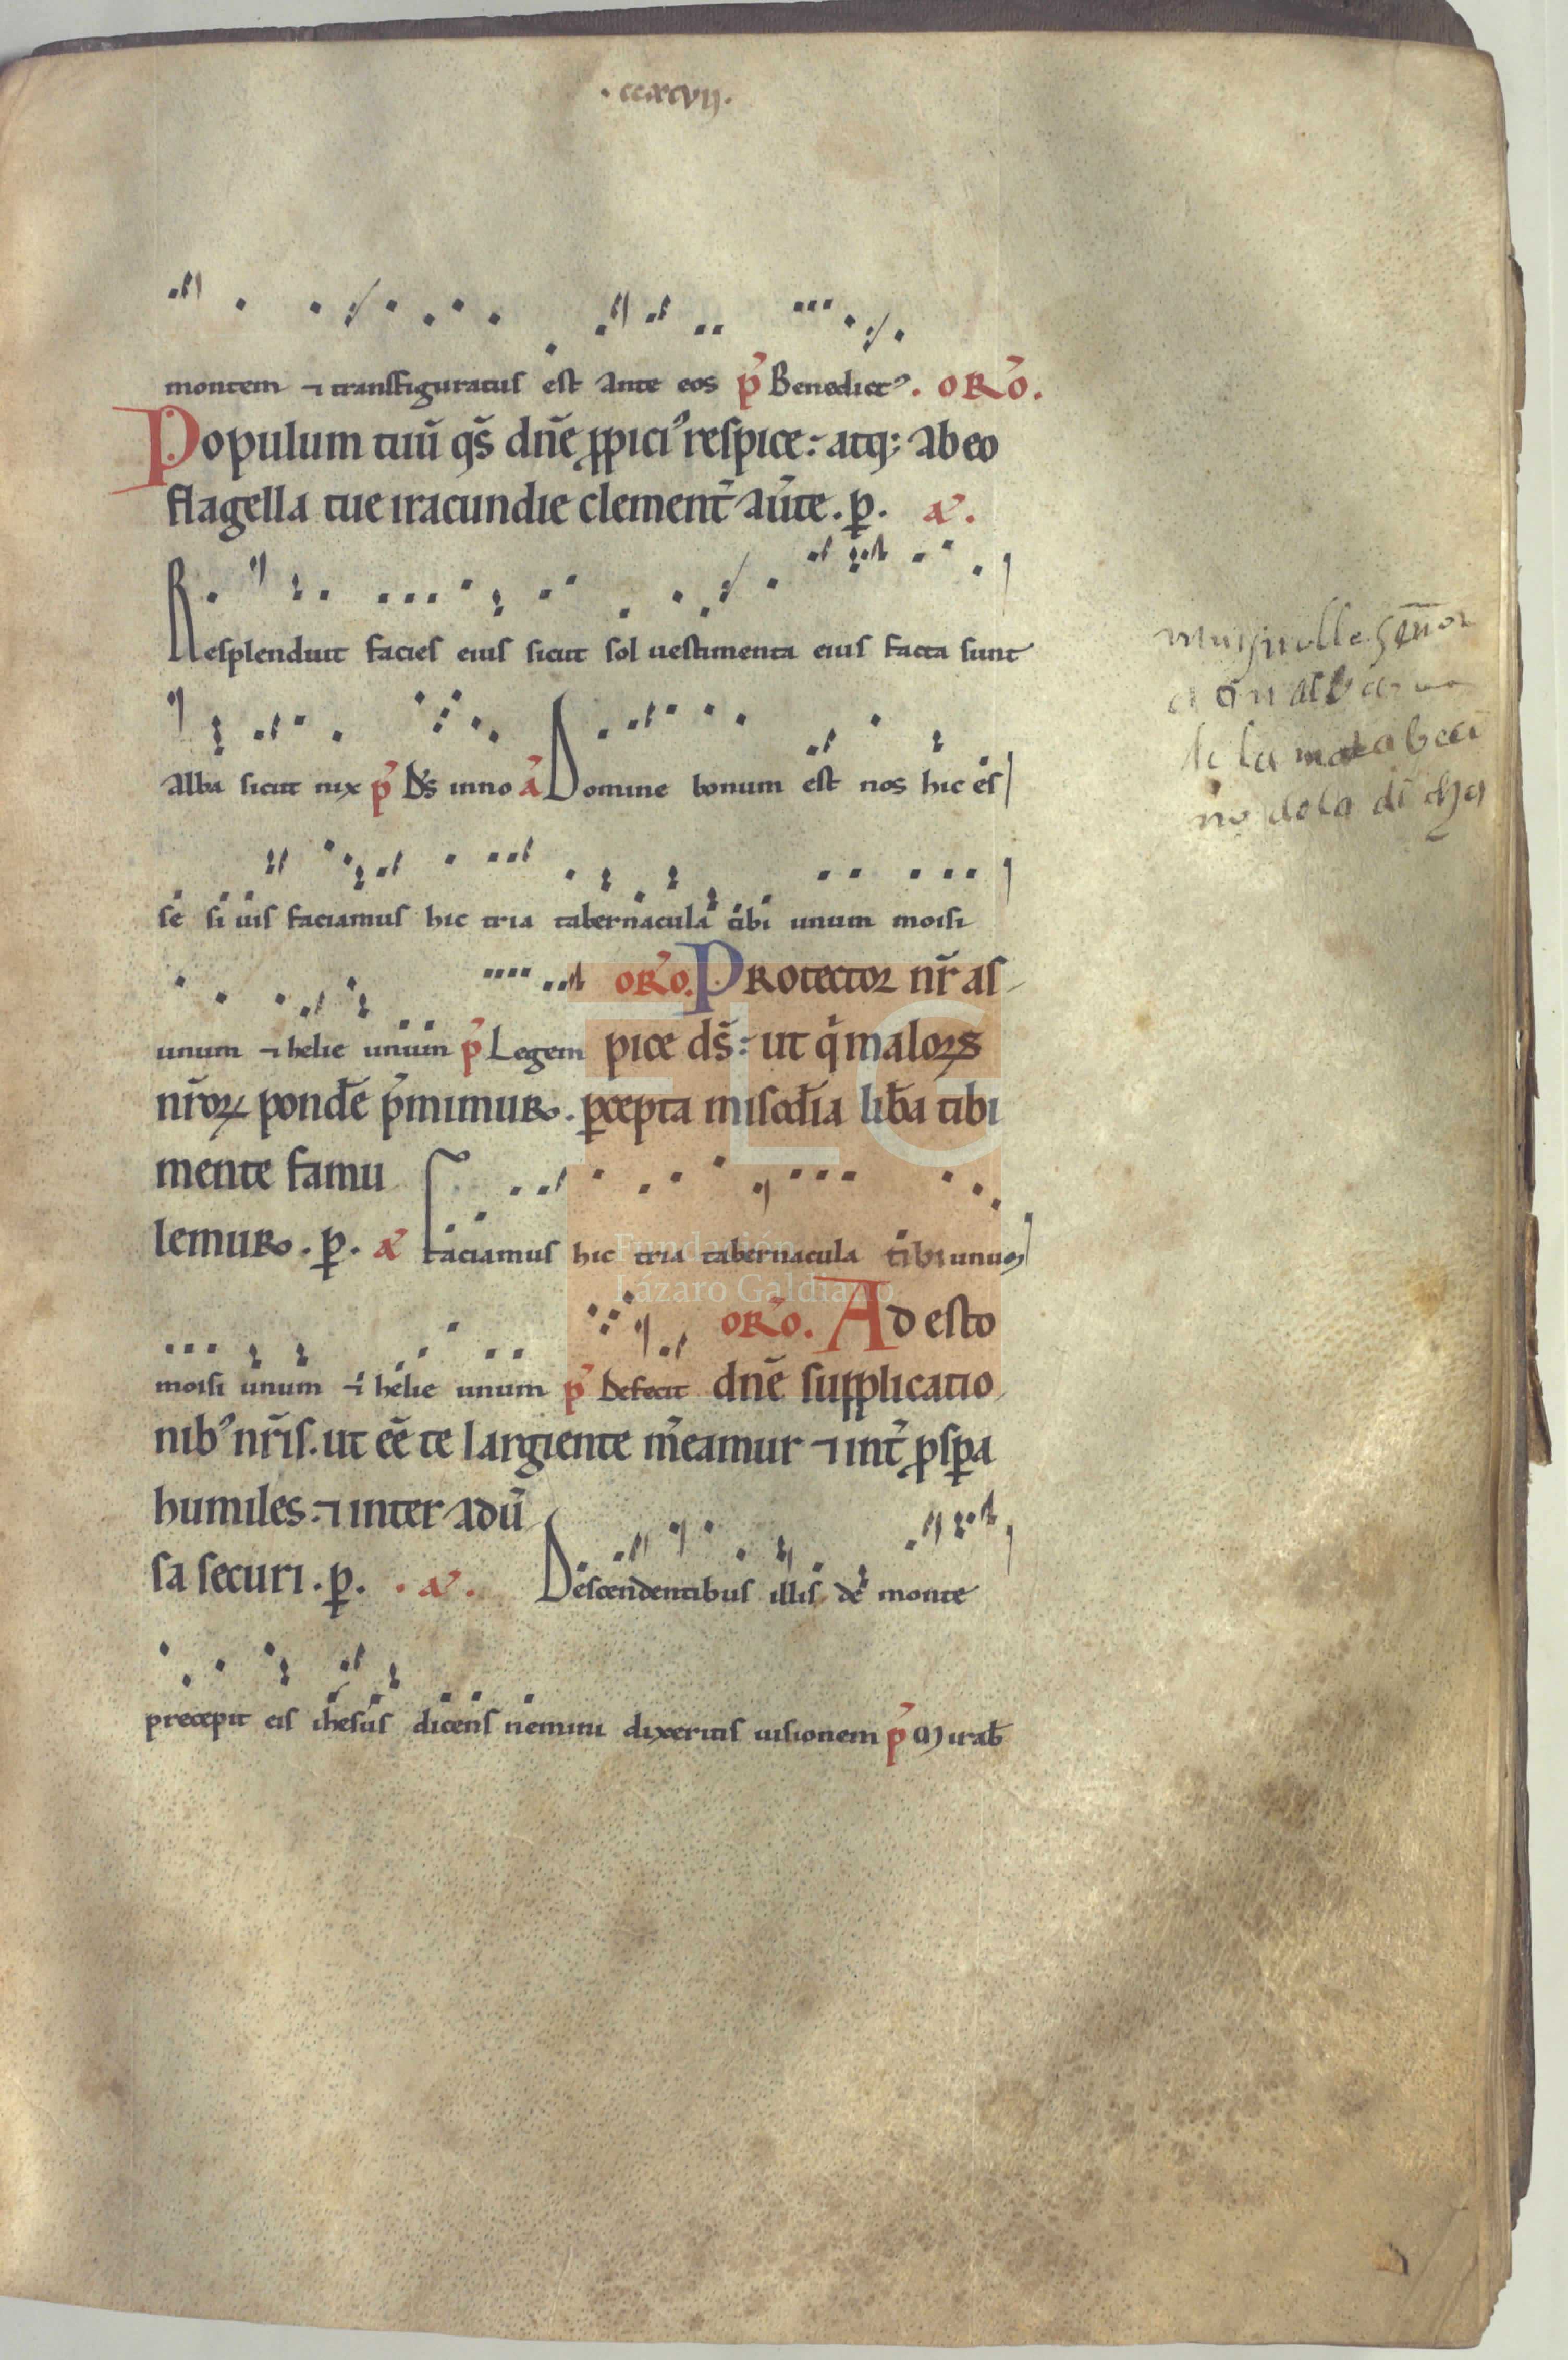 · ccxcvij ·
montem ⁊ transfiguratus est ante eos p̃ Benedict⁹. ORO.
Populum tuū q̄s dn̄e ꝓpici⁹ respice: atq; ab eo
flagella tue iracundie clement̄ aūte. ꝑ. a᷑.
Resplenduit facies eius sicut sol uestimenta eius facta sunt
alba sicut nix p̃ D̄s inno ā Domine bonum est nos hic es
se si uis faciamus hic tria tabernacula tibi unum moisi
ORO. Protector nr̄ as
unum ⁊ helie unum p̃ Legem pice ds̄: ut q̇ maloꝝ
nr̄oꝝ pond̄e p̄mimur. ꝑcepta misc̄dia lib̄a tibi
mente famu
lemur. ꝑ. a᷑ Faciamus hic tria tabernacula tibi unum
ORO. Adesto
moisi unum ⁊ helie unum p̃ Defecit dn̄e supplicatio
nib⁹ nr̄is. ut ēē te largiente m̄eamur ⁊ int̄ ꝓsꝑa
humiles: ⁊ inter adū
sa securi. ꝑ. · a᷑. Descendentibus illis de monte
precepit eis ihesus dicens nemini dixeritis uisionem p̃ Mirab̄
señor
de la
no dela dicha
FLG
Fundación
Lázaro Galdiano